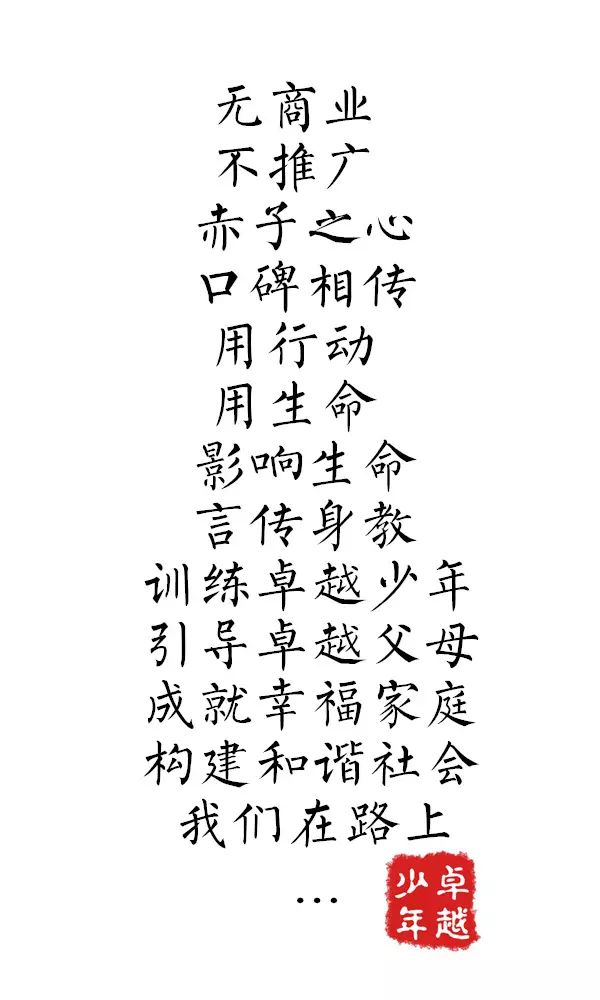 无商业
不推广
赤子之心
口碑相传
用行动
用生命
影响生命
言传身教
训练卓越少年
引导卓越父母
成就幸福家庭
构建和谐社会
我们在路上
...
卓越
少年